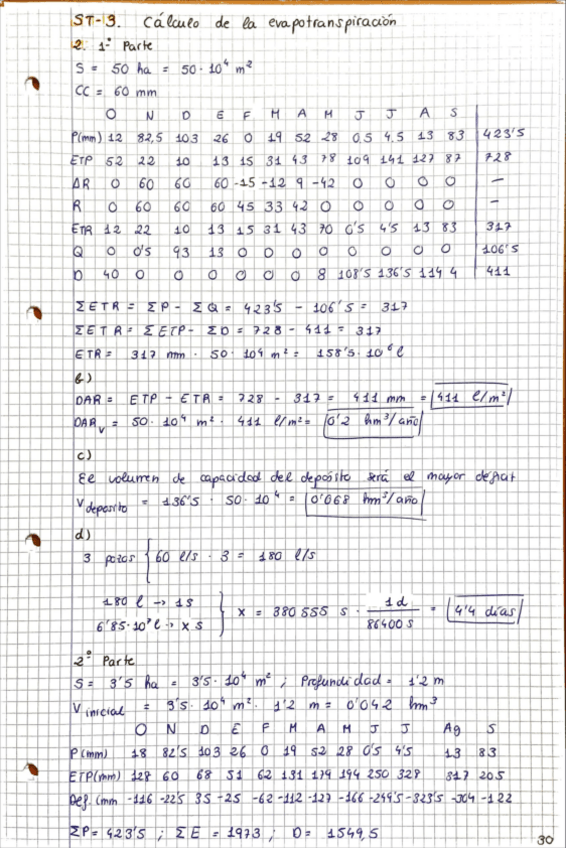 ST-3. Cálculo de la evapotranspiración
2. 1ª Parte
S = 50 ha = 50·10⁴ m²
CC = 60 mm
O N D E F M A M J J A S
P(mm) 12 82,5 103 26 0 19 52 28 0,5 4,5 13 83 423'5
ETP 52 22 10 13 15 31 43 78 109 141 127 87 728
ΔR 0 60 60 60 -15 -12 9 -42 0 0 0 0 –
R 0 60 60 60 45 33 42 0 0 0 0 0 –
ETR 12 22 10 13 15 31 43 70 0'5 4'5 13 83 317
Q 0 0'5 93 13 0 0 0 0 0 0 0 0 106'5
D 40 0 0 0 0 0 0 8 108'5 136'5 114 4 411
ΣETR = ΣP - ΣQ = 423'5 - 106'5 = 317
ΣETR = ΣETP - ΣD = 728 - 411 = 317
ETR = 317 mm · 50·10⁴ m² = 158'5·10⁶ l
b)
DAR = ETP - ETR = 728 - 317 = 411 mm = 411 l/m²
DARᵥ = 50·10⁴ m² · 411 l/m² = 0'2 hm³/año
c)
El volumen de capacidad del depósito será el mayor déficit
V depósito = 136'5 · 50·10⁴ = 0'068 hm³/año
d)
3 pozos { 60 l/s · 3 = 180 l/s
180 l → 1 s
6'85·10⁷ l → x s } x = 380 555 s · 1 d / 86400 s = 4'4 días
2ª Parte
S = 3'5 ha = 3'5·10⁴ m² ; Profundidad = 1'2 m
V inicial = 3'5·10⁴ m² · 1'2 m = 0'042 hm³
O N D E F M A M J J Ag S
P(mm) 18 82'5 103 26 0 19 52 28 0'5 4'5 13 83
ETP(mm) 128 60 68 51 62 131 179 194 250 328 317 205
Def. (mm -116 -22'5 35 -25 -62 -112 -127 -166 -249'5 -323'5 -304 -122
ΣP = 423'5 ; ΣE = 1973 ; D = 1549,5
30